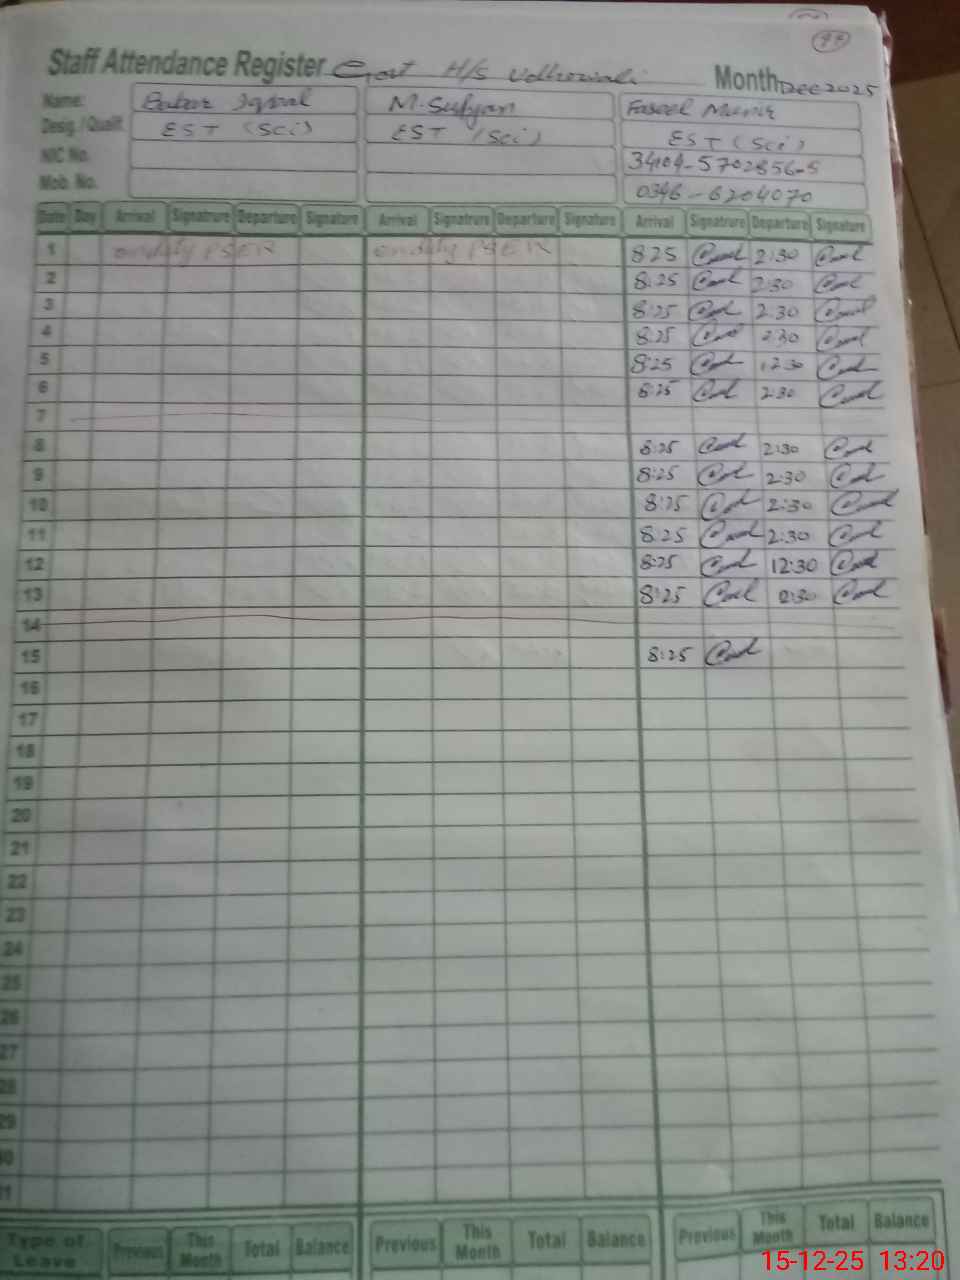 98
Staff Attendance Register Govt H/S Udhowali Month Dec 2025
Name: Babar Iqbal M. Sufyan Faseel Munir
Desig. / Qualif. EST (Sci) EST (Sci) EST (Sci)
NIC No. 34104-5702856-5
Mob. No. 0346-6204070
Date Day Arrival Signatrure Departure Signature Arrival Signatrure Departure Signature Arrival Signatrure Departure Signature
1 on duty PSER on duty PSER 8:25 2:30
2 8:25 2:30
3 8:25 2:30
4 8:25 2:30
5 8:25 12:30
6 8:25 2:30
7
8 8:25 2:30
9 8:25 2:30
10 8:25 2:30
11 8:25 2:30
12 8:25 12:30
13 8:25 2:30
14
15 8:25
16
17
18
19
20
21
22
23
24
25
26
27
28
29
30
31
Type of Leave Previous This Month Total Balance Previous This Month Total Balance Previous This Month Total Balance
15-12-25 13:20